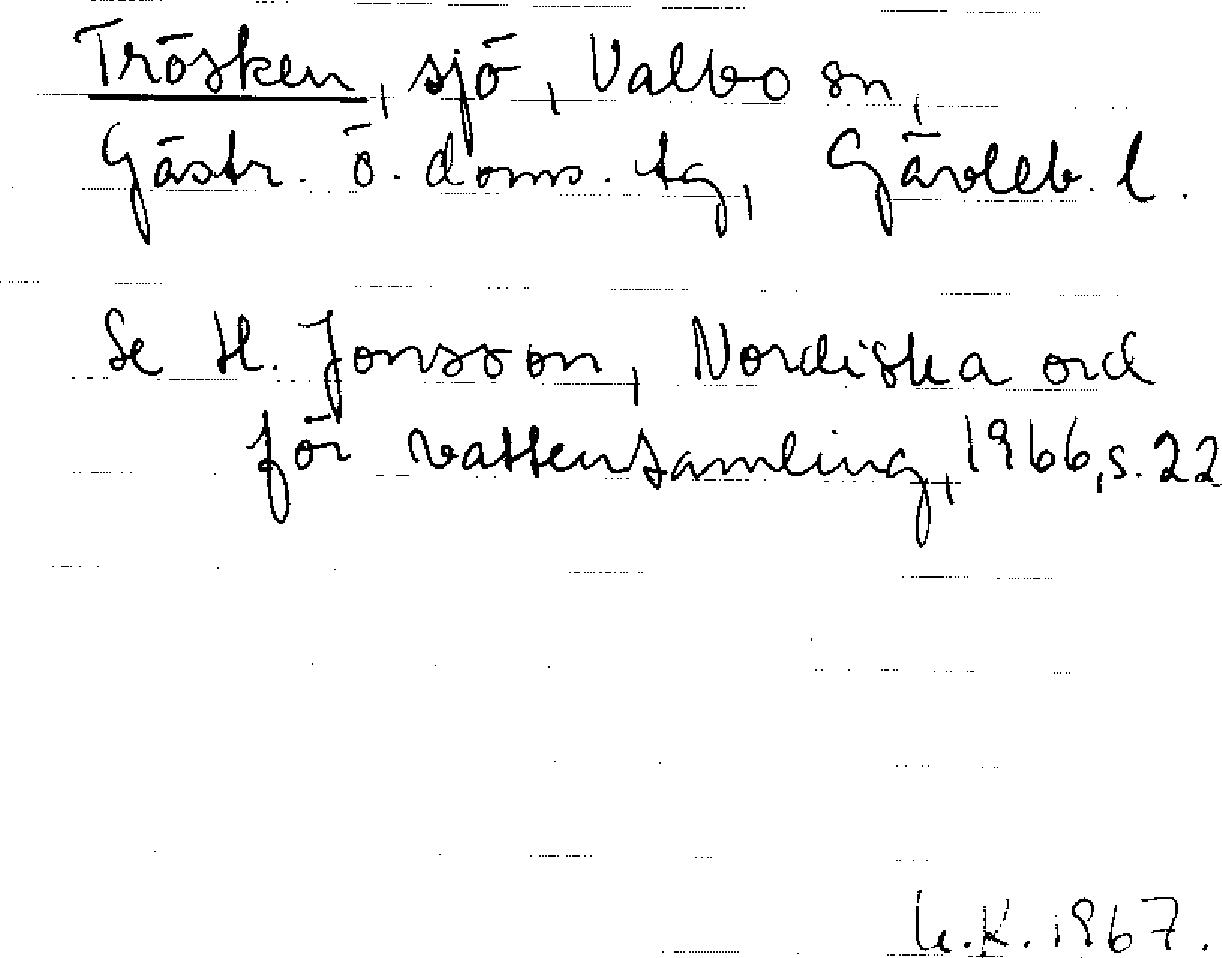 Trösken, sjö, Valbo sn,
Gästr. ö. doms. tg, Gävleb. l.
Se H. Jonsson, Nordiska ord
för vattensamling, 1966, s. 22
K. 1967.